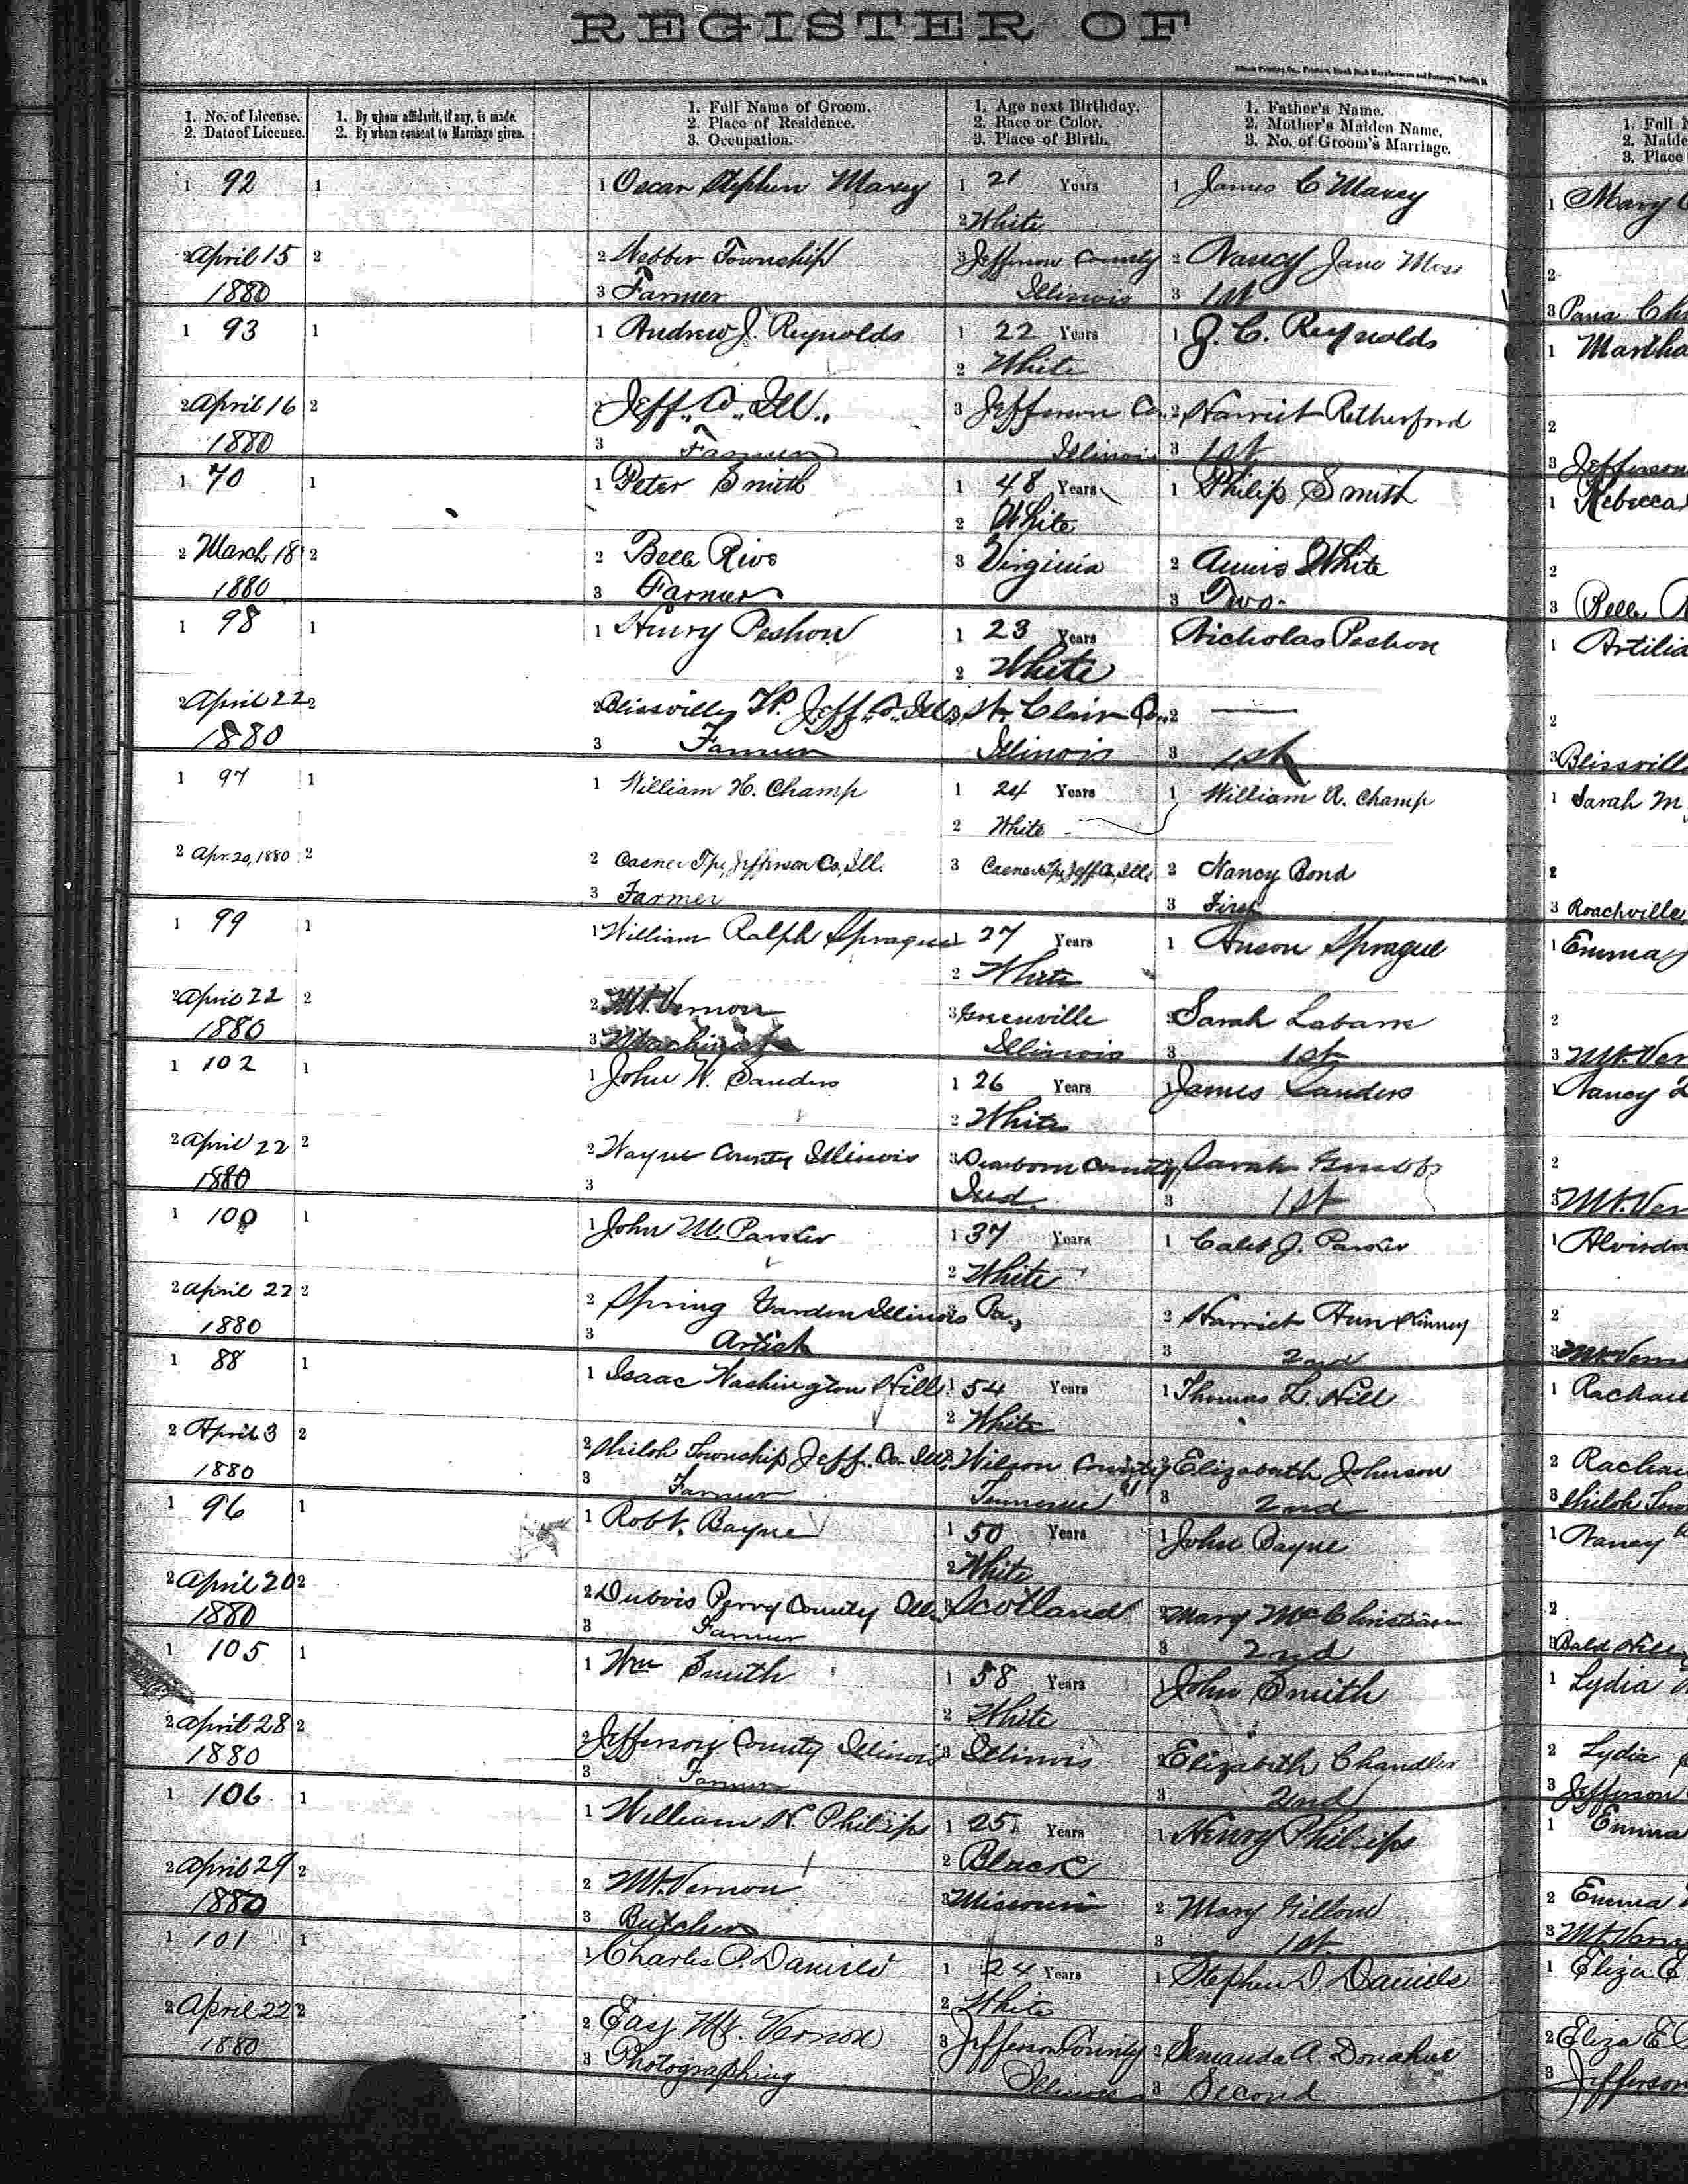 REGISTER OF
1. No. of License.
2. Date of License.
1. By whom affidavit, if any, is made.
2. By whom consent to Marriage given.
1. Full Name of Groom.
2. Place of Residence.
3. Occupation.
1. Age next Birthday.
2. Race or Color.
3. Place of Birth.
1. Father's Name.
2. Mother's Maiden Name.
3. No. of Groom's Marriage.
1. Full
2. Maide
3. Place
1 92 1 1 Oscar Stephen Maxey 1 21 Years 1 James C Maxey 1 Mary
2 White
2 April 15 2 2 Webber Township 3 Jefferson County 2 Nancy Jane Moss 2
1880 3 Farmer Illinois 3 1st 3 Pana
1 93 1 1 Andrew J. Reynolds 1 22 Years 1 J. C. Reynolds 1 Martha
2 White
2 April 16 2 2 Jeff. Co. Ill. 3 Jefferson Co. 2 Harriet Retherford 2
1880 3 Farmer Illinois 3 1st 3 Jefferson
1 70 1 1 Peter Smith 1 48 Years 1 Philip Smith 1 Rebecca
2 White
2 March 18 2 2 Belle Rive 3 Virginia 2 Annis White 2
1880 3 Farmer 3 Two 3 Belle R
1 98 1 1 Henry Peshon 1 23 Years Nicholas Peshon 1 Artilia
2 White
2 April 22 2 2 Blissville TP. Jeff. Co. Ill 3 St. Clair Co. 2 — 2
1880 3 Farmer Illinois 3 1st 3 Blissville
1 97 1 1 William H. Champ 1 24 Years 1 William R. Champ 1 Sarah M
2 White
2 Apr. 20, 1880 2 2 Casner Tp., Jefferson Co., Ill. 3 Casner Tp., Jeff. Co., Ill. 2 Nancy Bond 2
3 Farmer 3 First 3 Roachville
1 99 1 1 William Ralph Sprague 1 27 Years 1 Anson Sprague 1 Emma
2 White
2 April 22 2 2 Mt. Vernon 3 Greenville 2 Sarah Labarre 2
1880 3 Machinist Illinois 3 1st 3 Mt. Ver
1 102 1 1 John W. Sanders 1 26 Years 1 James Sanders Nancy
2 White
2 April 22 2 2 Wayne County Illinois 3 Dearborn County Sarah Grubbs 2
1880 3 Ind. 3 1st 3 Mt. Ver
1 100 1 1 John M. Parker 1 37 Years 1 Caleb J. Parker 1
2 White
2 April 22 2 2 Spring Garden Illinois 3 Pa. 2 Harriet Ann Kinney 2
1880 3 Artist 3 2nd 3 Mt. Vern
1 88 1 1 Isaac Washington Hill 1 54 Years 1 Thomas L. Hill 1 Rachael
2 White
2 April 3 2 2 Shiloh Township Jeff. Co. Ill. 3 Wilson County 2 Elizabeth Johnson 2 Rachae
1880 3 Farmer Tennessee 3 2nd 3 Shiloh Tow
1 96 1 1 Robt. Bayne 1 50 Years 1 John Bayne 1 Nancy
2 White
2 April 20 2 2 Dubois Perry County Ill. 3 Scotland 2 Mary 2
1880 3 Farmer 3 2nd 3 Bald Hill
1 105 1 1 Wm Smith 1 58 Years 1 John Smith 1 Lydia
2 White
2 April 28 2 2 Jefferson County Illinois 3 Illinois 2 Elizabeth Chandler 2 Lydia
1880 3 Farmer 3 2nd 3 Jefferson
1 106 1 1 William H. Philips 1 25 Years 1 Henry Philips 1 Emma
2 Black
2 April 29 2 2 Mt. Vernon 3 Missouri 2 Mary 2 Emma
1880 3 Butcher 3 1st. 3 Mt Vern
1 101 1 1 Charles P. Daniels 1 24 Years 1 Stephen D. Daniels 1 Eliza E
2 White
2 April 22 2 2 East Mt. Vernon 3 Jefferson County 2 Semanda A. Donahue 2 Eliza E
1880 3 Photographing Illinois 3 Second 3 Jefferson